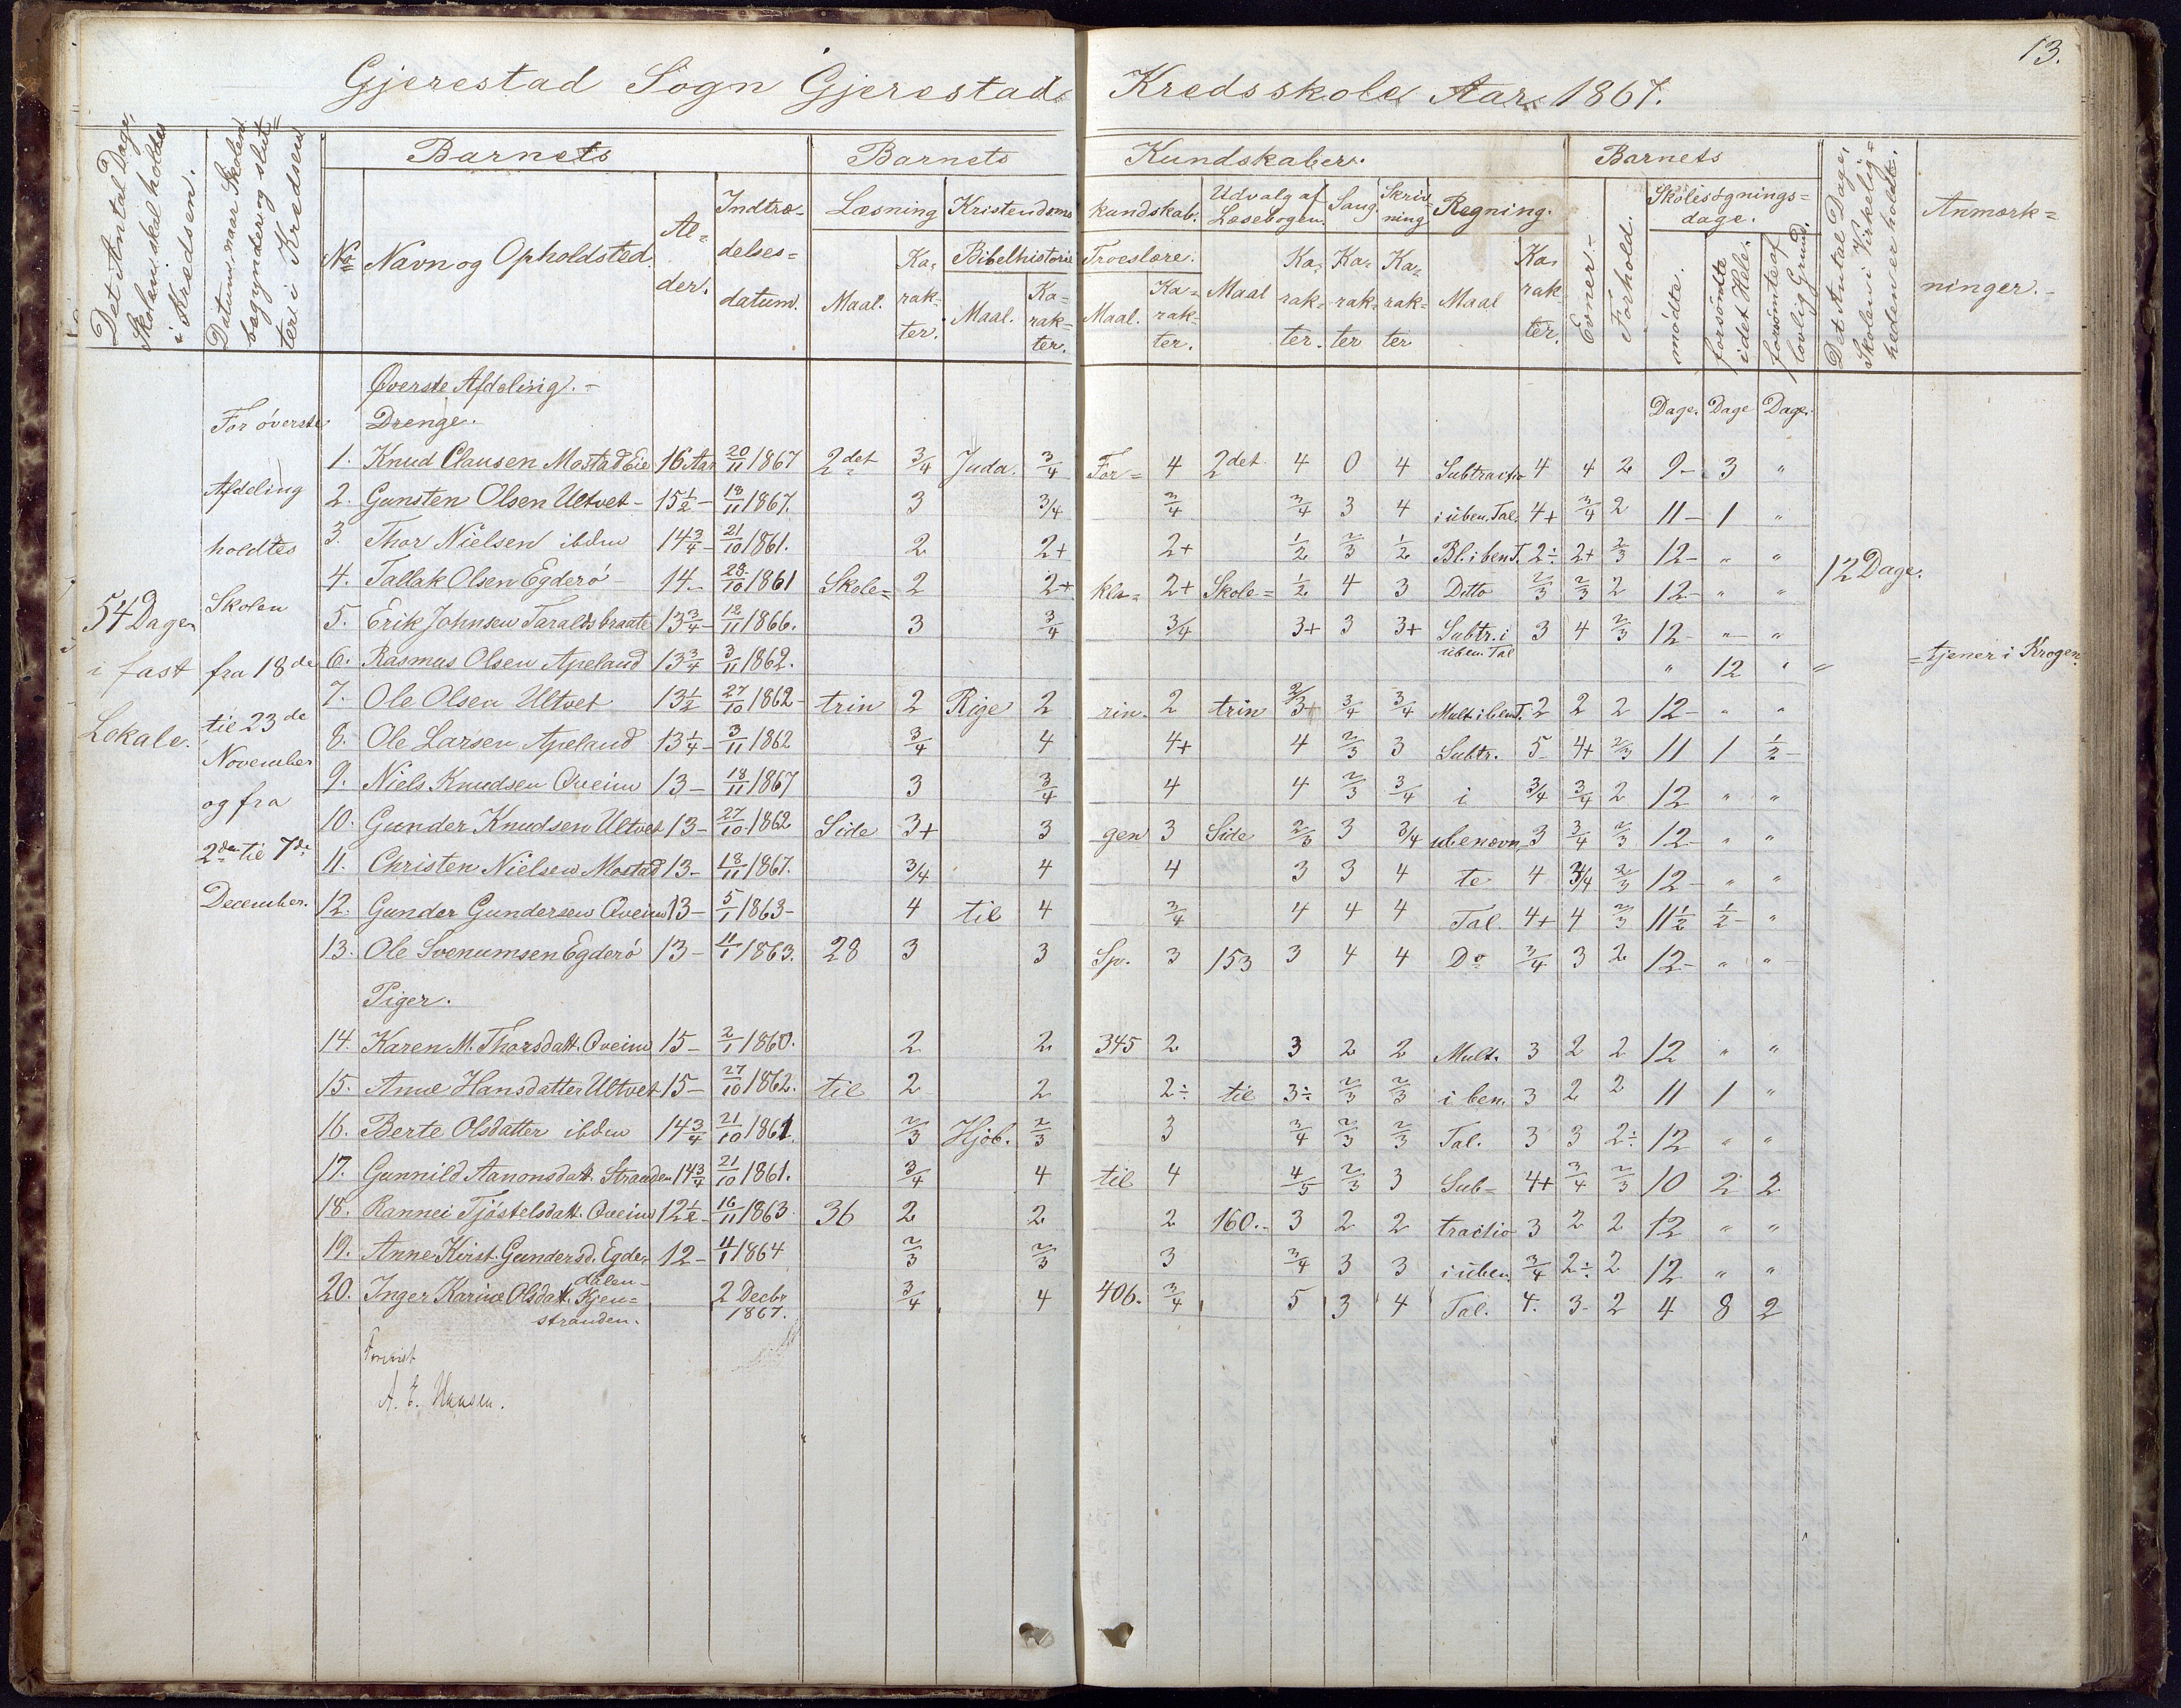 13.
Gjerestad Sogn Gjerestads Kredsskole Aar 1867.
Det Antal Dage, Skolen skal holdes i Kredsen.
Datum, naar Skolen begynder og slutter i Kredsen
Barnets
Barnets Kundskaber.
Barnets
Det Antal Dage, Skolen i Virkeligheden er holdt.
Anmærkninger.
No Navn og Opholdsted. Alder. Indtrædelsesdatum.
Læsning Kristendoms kundskab. Udvalg af Læsebogen. Sang. Skrivning Regning. Evner. Forhold. Skolesøgningsdage.
Maal. Karakter. Bibelhistorie Maal. Karakter. Troeslære. Maal. Karakter. Maal Karakter. Karakter Karakter Maal Karakter. mødte. forsømte i det Hele. forsømte af lovlig Grund.
Øverste Afdeling.
Dage. Dage Dage.
For øverste Afdeling holdtes Skolen fra 18de til 23de November og fra 2den til 7de December.
54 Dage i fast Lokale.
12 Dage.
Drenge.
1. Knud Clausen Mostad Eie 16 Aar 20/11 1867 2det 3/4 Juda. 3/4 For= 4 2det 4 0 4 Subtractio 4 4 2 9- 3 "
2. Gunsten Olsen Ultvet- 15 1/2- 18/11 1867. 3 3/4 3/4 3/4 3 4 i uben. Tal. 4+ 3/4 2 11- 1 "
3. Thor Nielsen ibdm 14 3/4- 21/10 1861. 2 2+ 2+ 1/2 2/3 1/2 Bl. i ben T. 2÷ 2+ 2/3 12- " "
4. Tallak Olsen Egderö- 14- 28/10 1861 Skole= 2 2+ kla= 2+ Skole= 1/2 4 3 Ditto 2/3 2/3 2 12- " "
5. Erik Johnsen Taraldsbraate 13 3/4- 12/11 1866. 3 3/4 3/4 3+ 3 3+ Subtr. i uben. Tal 3 4 2/3 12- " "
6. Rasmus Olsen Apeland 13 3/4 3/11 1862. " 12 " " = tjener i Krogen.
7. Ole Olsen Ultvet 13 1/2 27/10 1862- trin 2 Rige 2 rin. 2 trin 2/3+ 3/4 3/4 Mult i ben T. 2 2 2 12- " "
8. Ole Larsen Apeland 13 1/4- 3/11 1862 3/4 4 4+ 4 2/3 3 Subtr. 5 4+ 2/3 11 1 1/2-
9. Niels Knudsen Qveim 13- 18/11 1867 3 3/4 4 4 2/3 3/4 i 3/4 3/4 2 12 " "
10. Gunder Knudsen Ultvet 13- 27/10 1862 Side 3+ 3 gen 3 Side 2/3 3 3/4 ubenævn= 3 3/4 2/3 12- " "
11. Christen Nielsen Mostad 13- 18/11 1867. 3/4 4 4 3 3 4 te 4 3/4 2/3 12- " "
12. Gunder Gundersen Qveim 13- 5/1 1863- 4 til 4 3/4 4 4 4 Tal. 4+ 4 2/3 11 1/2 1/2- "
13. Ole Svenumsen Egderö 13- 11/1 1863. 28 3 3 Sp. 3 153 3 4 4 Do 3/4 3 2 12- " "
Piger.
14. Karen M. Thorsdatt. Qveim 15- 2/1 1860. 2 2 345 2 3 2 2 Mult. 3 2 2 12 " "
15. Anne Hansdatter Ultvet 15- 27/10 1862. til 2 2 2÷ til 3÷ 2/3 2/3 i ben. 3 2 2 11 1 "
16. Berte Olsdatter ibdm 14 3/4 21/10 1861. 2/3 Hjob. 2/3 3 3/4 2/3 2/3 Tal. 3 3 2÷ 12 " "
17. Gunnild Aanonsdatt. Stranden 14 3/4 21/10 1861. 3/4 4 til 4 4/5 2/3 3 Sub= 4+ 3/4 2/3 10 2 2
18. Rannei Tjöstelsdatt. Qveim 12 1/2- 16/11 1863 36 2 2 2 160.- 3 2 2 tractio 3 2 2 12 " "
19. Anne Kirst. Gundersd. Egdedalen- 12- 11/1 1864 2/3 2/3 3 3/4 3 3 i uben 3/4 2÷ 2 12 " "
20. Inger Karine Olsdatt. Kjenstranden. 2 Decbr 1867. 3/4 4 406. 3/4 5 3 4 Tal. 4. 3- 2 4 8 2
A. E. Hansen.